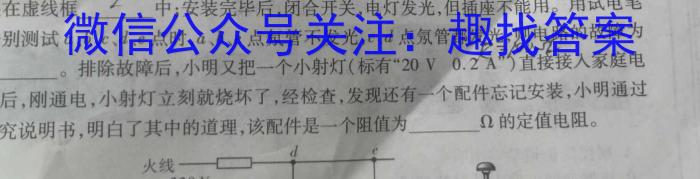 在虚线框 中;安装完毕后,闭合开关,电灯发光,但插座不能用。用试电笔
别测试
微信公众号关注:趣找答案
。排除故障后,小明又把一个小射灯(标有“20 V 0.2 A”)直接接入家庭电
后,刚通电,小射灯立刻就烧坏了,经检查,发现还有一个配件忘记安装,小明通过
究说明书,明白了其中的道理,该配件是一个阻值为 Ω 的定值电阻。
火线 d e